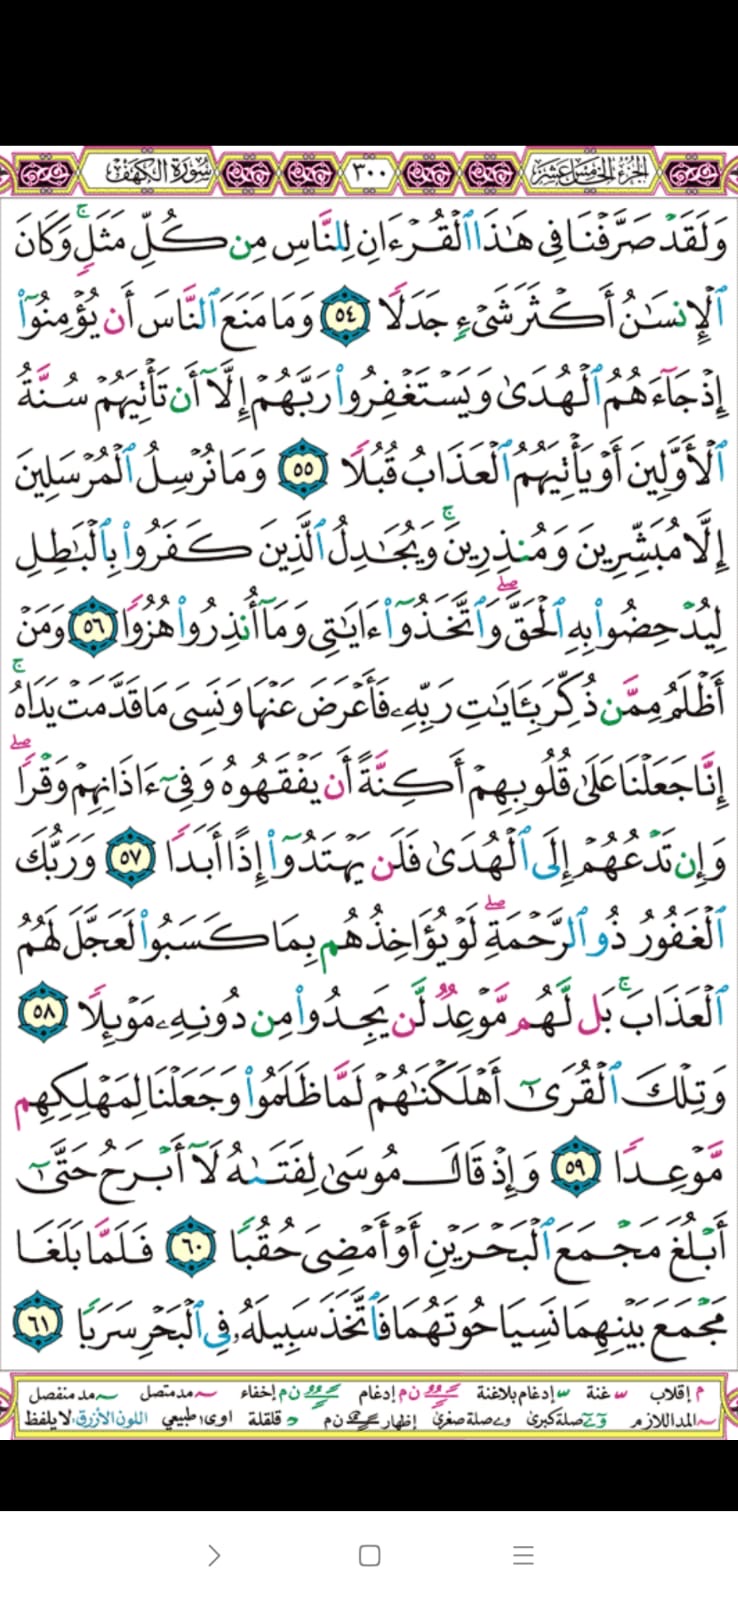 الجزء الخامس عشر ٣٠٠ سورة الكهف
وَلَقَدْ صَرَّفْنَا فِي هَٰذَا ٱلْقُرْءَانِ لِلنَّاسِ مِن كُلِّ مَثَلٍۚ وَكَانَ
ٱلْإِنسَٰنُ أَكْثَرَ شَىْءٍ جَدَلًا ٥٤ وَمَا مَنَعَ ٱلنَّاسَ أَن يُؤْمِنُوٓا۟
إِذْ جَآءَهُمُ ٱلْهُدَىٰ وَيَسْتَغْفِرُوا۟ رَبَّهُمْ إِلَّآ أَن تَأْتِيَهُمْ سُنَّةُ
ٱلْأَوَّلِينَ أَوْ يَأْتِيَهُمُ ٱلْعَذَابُ قُبُلًا ٥٥ وَمَا نُرْسِلُ ٱلْمُرْسَلِينَ
إِلَّا مُبَشِّرِينَ وَمُنذِرِينَۚ وَيُجَٰدِلُ ٱلَّذِينَ كَفَرُوا۟ بِٱلْبَٰطِلِ
لِيُدْحِضُوا۟ بِهِ ٱلْحَقَّۖ وَٱتَّخَذُوٓا۟ ءَايَٰتِى وَمَآ أُنذِرُوا۟ هُزُوًا ٥٦ وَمَنْ
أَظْلَمُ مِمَّن ذُكِّرَ بِـَٔايَٰتِ رَبِّهِۦ فَأَعْرَضَ عَنْهَا وَنَسِىَ مَا قَدَّمَتْ يَدَاهُۚ
إِنَّا جَعَلْنَا عَلَىٰ قُلُوبِهِمْ أَكِنَّةً أَن يَفْقَهُوهُ وَفِىٓ ءَاذَانِهِمْ وَقْرًاۖ
وَإِن تَدْعُهُمْ إِلَى ٱلْهُدَىٰ فَلَن يَهْتَدُوٓا۟ إِذًا أَبَدًا ٥٧ وَرَبُّكَ
ٱلْغَفُورُ ذُو ٱلرَّحْمَةِۖ لَوْ يُؤَاخِذُهُم بِمَا كَسَبُوا۟ لَعَجَّلَ لَهُمُ
ٱلْعَذَابَۚ بَل لَّهُم مَّوْعِدٌ لَّن يَجِدُوا۟ مِن دُونِهِۦ مَوْئِلًا ٥٨
وَتِلْكَ ٱلْقُرَىٰٓ أَهْلَكْنَٰهُمْ لَمَّا ظَلَمُوا۟ وَجَعَلْنَا لِمَهْلِكِهِم
مَّوْعِدًا ٥٩ وَإِذْ قَالَ مُوسَىٰ لِفَتَىٰهُ لَآ أَبْرَحُ حَتَّىٰٓ
أَبْلُغَ مَجْمَعَ ٱلْبَحْرَيْنِ أَوْ أَمْضِىَ حُقُبًا ٦٠ فَلَمَّا بَلَغَا
مَجْمَعَ بَيْنِهِمَا نَسِيَا حُوتَهُمَا فَٱتَّخَذَ سَبِيلَهُۥ فِى ٱلْبَحْرِ سَرَبًا ٦١
م إقلاب غنة إدغام بلاغنة ن م إدغام ن م إخفاء مد متصل مد منفصل
المد اللازم صلة كبرى صلة صغرى إظهار ن م قلقلة اوى طبيعي اللون الأزرق لا يلفظ